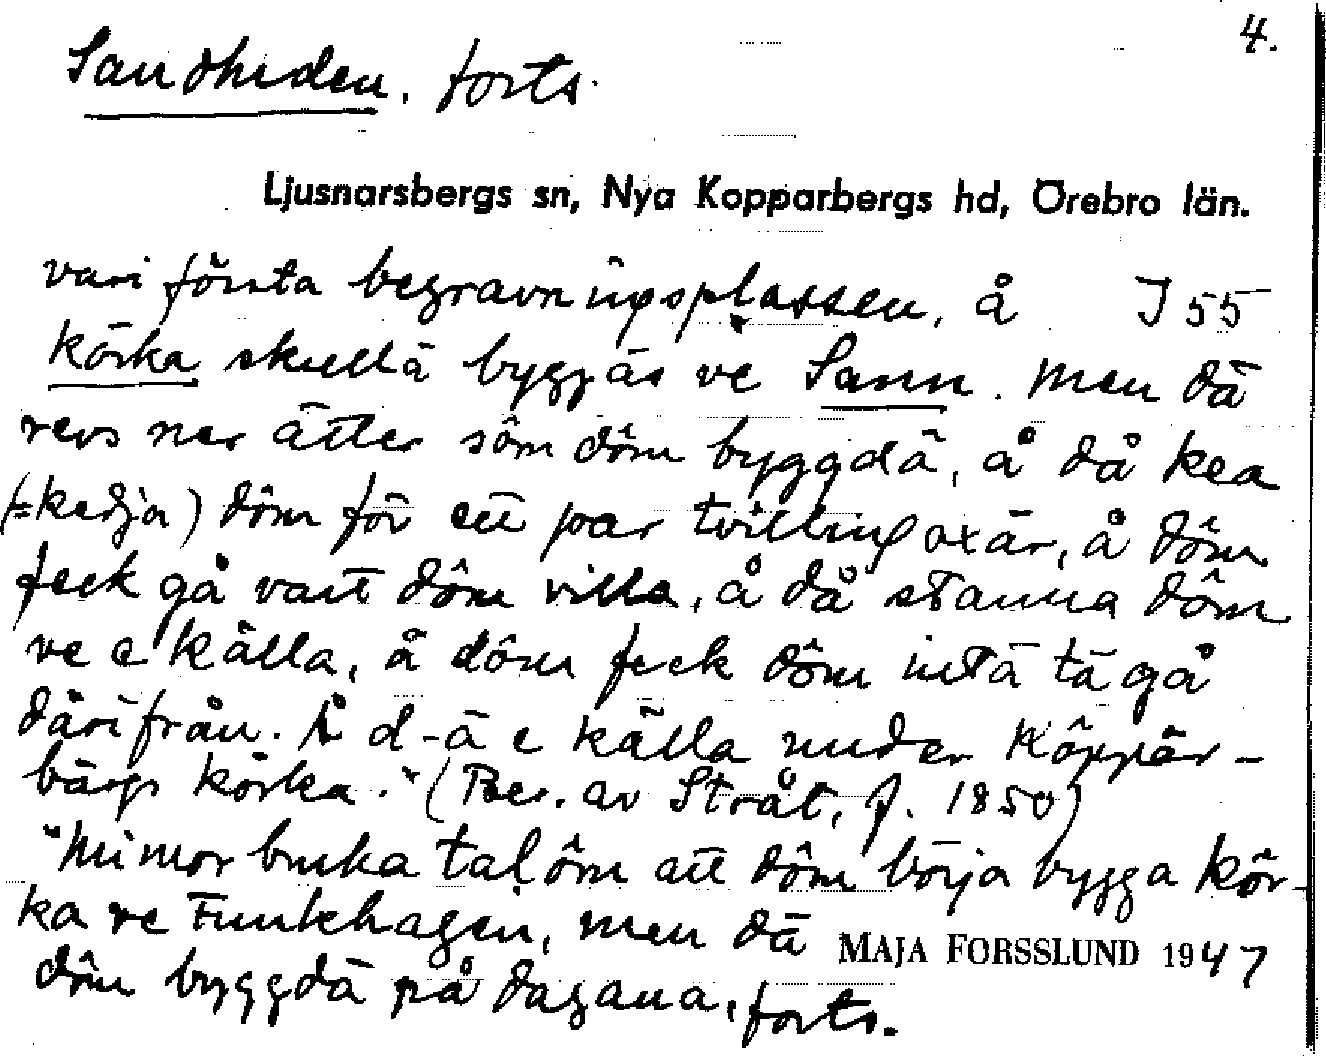 4.
Sandheden. forts.
Ljusnarsbergs sn, Nya Kopparbergs hd, Örebro län.
vari första begravningsplassen, å I 55
körka skullä byggäs ve Sann. Men dä
revs ner ätter sôm dôm byggdä, å då kea
(=kedja) dôm för ett par tvillingoxär, å dôm
feck gå vart dôm villa, å då stanna dôm
ve e källa, å dôm feck dôm intä tä gå
därifrån. Å d-ä e källa under Kôppär-
bärgs körka." (Ber. av Stråt, f. 1850)
"Mi mor bruka tal ôm att dôm börja bygga kör-
ka ve Funkhagen, men dä MAJA FORSSLUND 1947
dôm byggdä på dagana, forts.